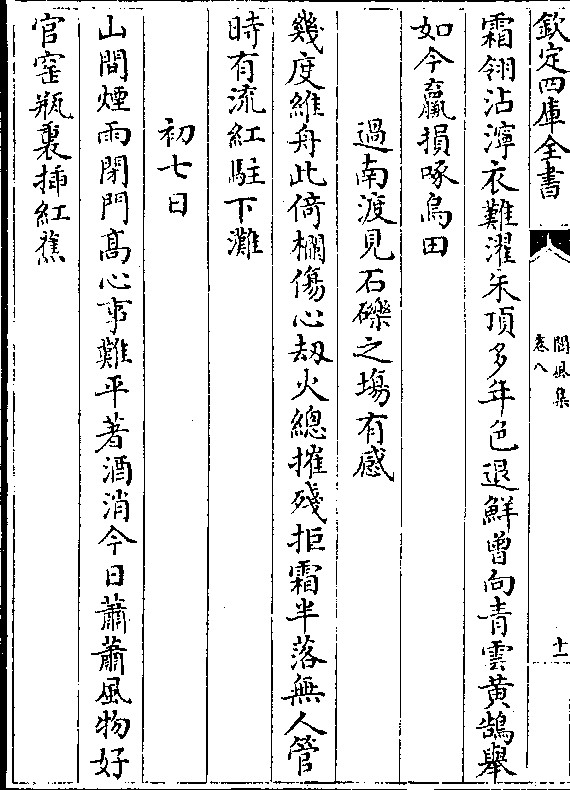 欽定四庫全書
閬風集
卷八
十一
霜翎沾濘衣難濯朱頂多年色退鮮曾向青雲黄鵠舉
如今羸損啄烏田
過南渡見石礫之塲有感
幾度維舟此倚欄傷心刼火總摧殘拒霜半落無人管
時有流紅駐下灘
初七日
山間煙雨閉門髙心事難平著酒消今日蕭蕭風物好
官窑瓶裏挿紅蕉